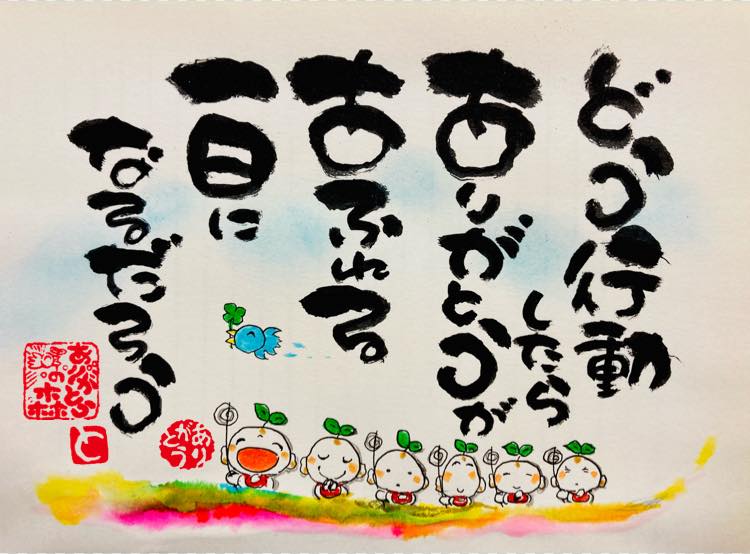 どう行動
したら
ありがとうが
あふれる
一日に
なるだろう
ありがとう